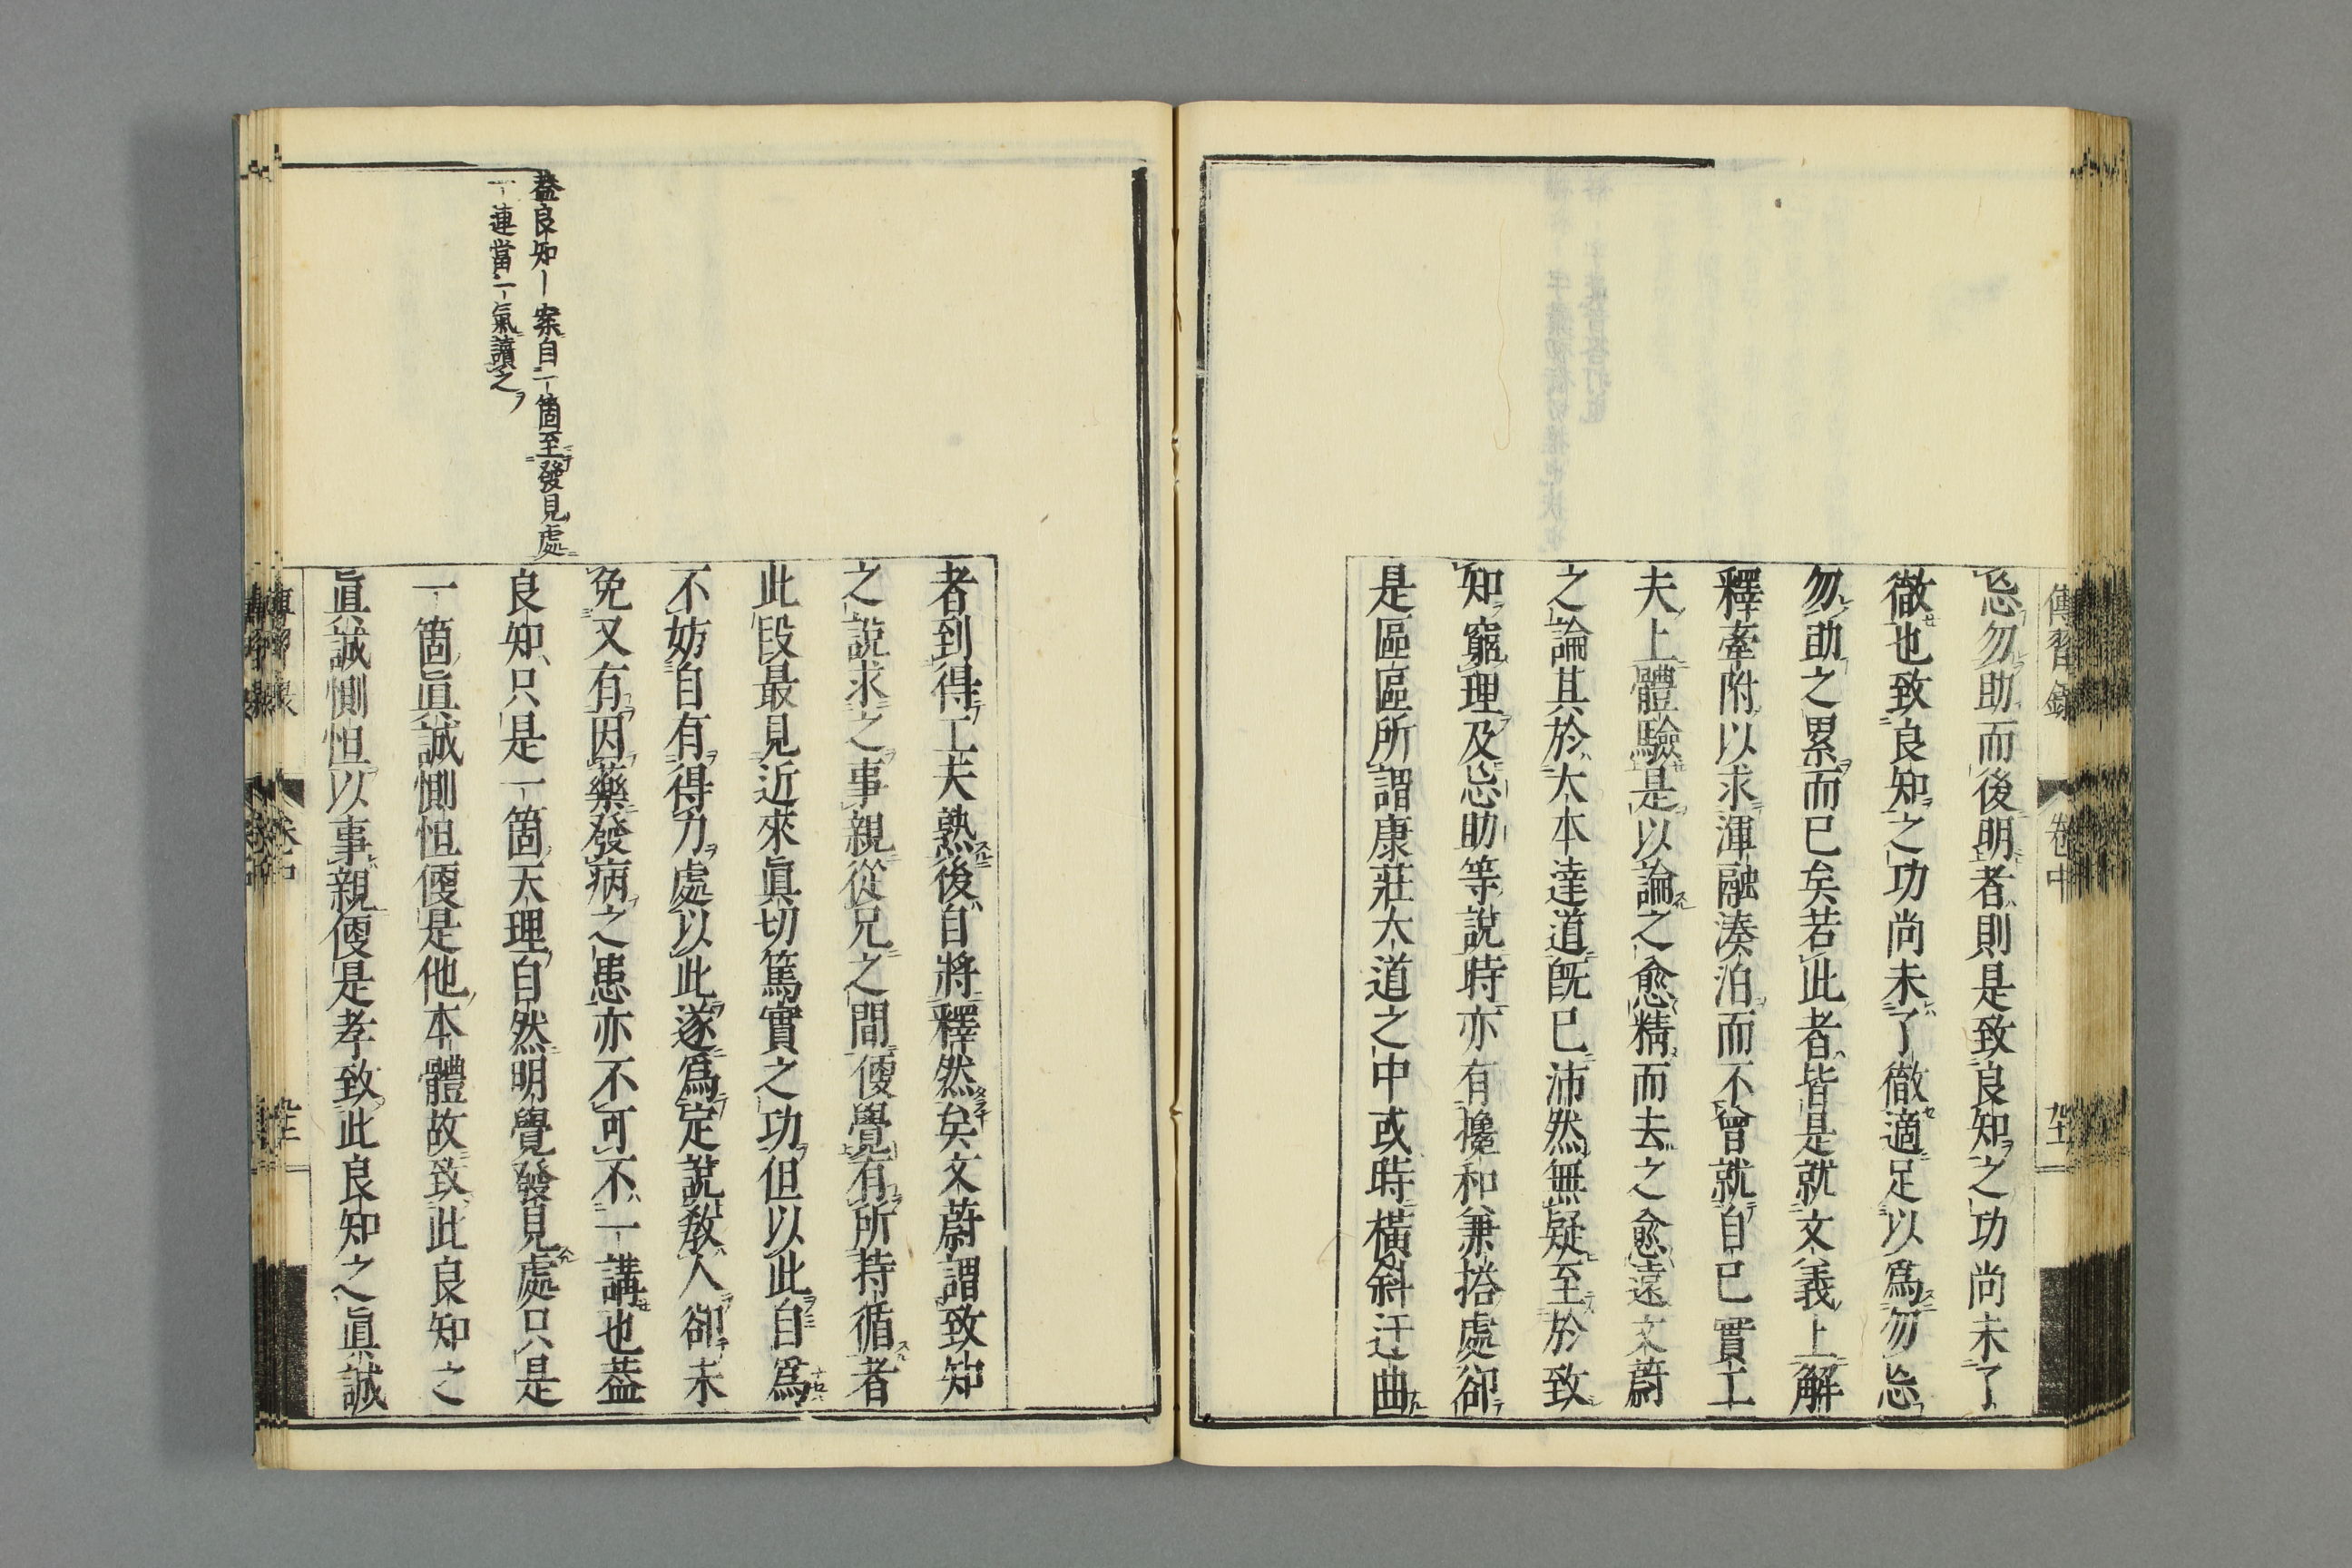 傳習錄
卷中
忘勿助而後明者則是致良知之功尚未了
徹也致良知之功尚未了徹適足以爲勿忘
勿助之累而已矣若此者皆是就文義上解
釋牽附以求渾融湊泊而不曾就自己實工
夫上體驗是以論之愈精而去之愈遠文蔚
之論其於大本達道旣已沛然無疑至於致
知窮理及忘助等說時亦有攙和兼搭處卻
是區區所謂康莊大道之中或時橫斜迂曲
者到得工夫熟後自將釋然矣文蔚謂致知
之說求之事親從兄之間便覺有所持循者
此段最見近來眞切篤實之功但以此自爲
不妨自有得力處以此遂爲定說敎人卻未
免又有因藥發病之患亦不可不一講也葢
良知只是一箇天理自然明覺發見處只是
一箇眞誠惻怛便是他本體故致此良知之
眞誠惻怛以事親便是孝致此良知之眞誠
葢良知｜案自一箇至發見處
一連當一氣讀之